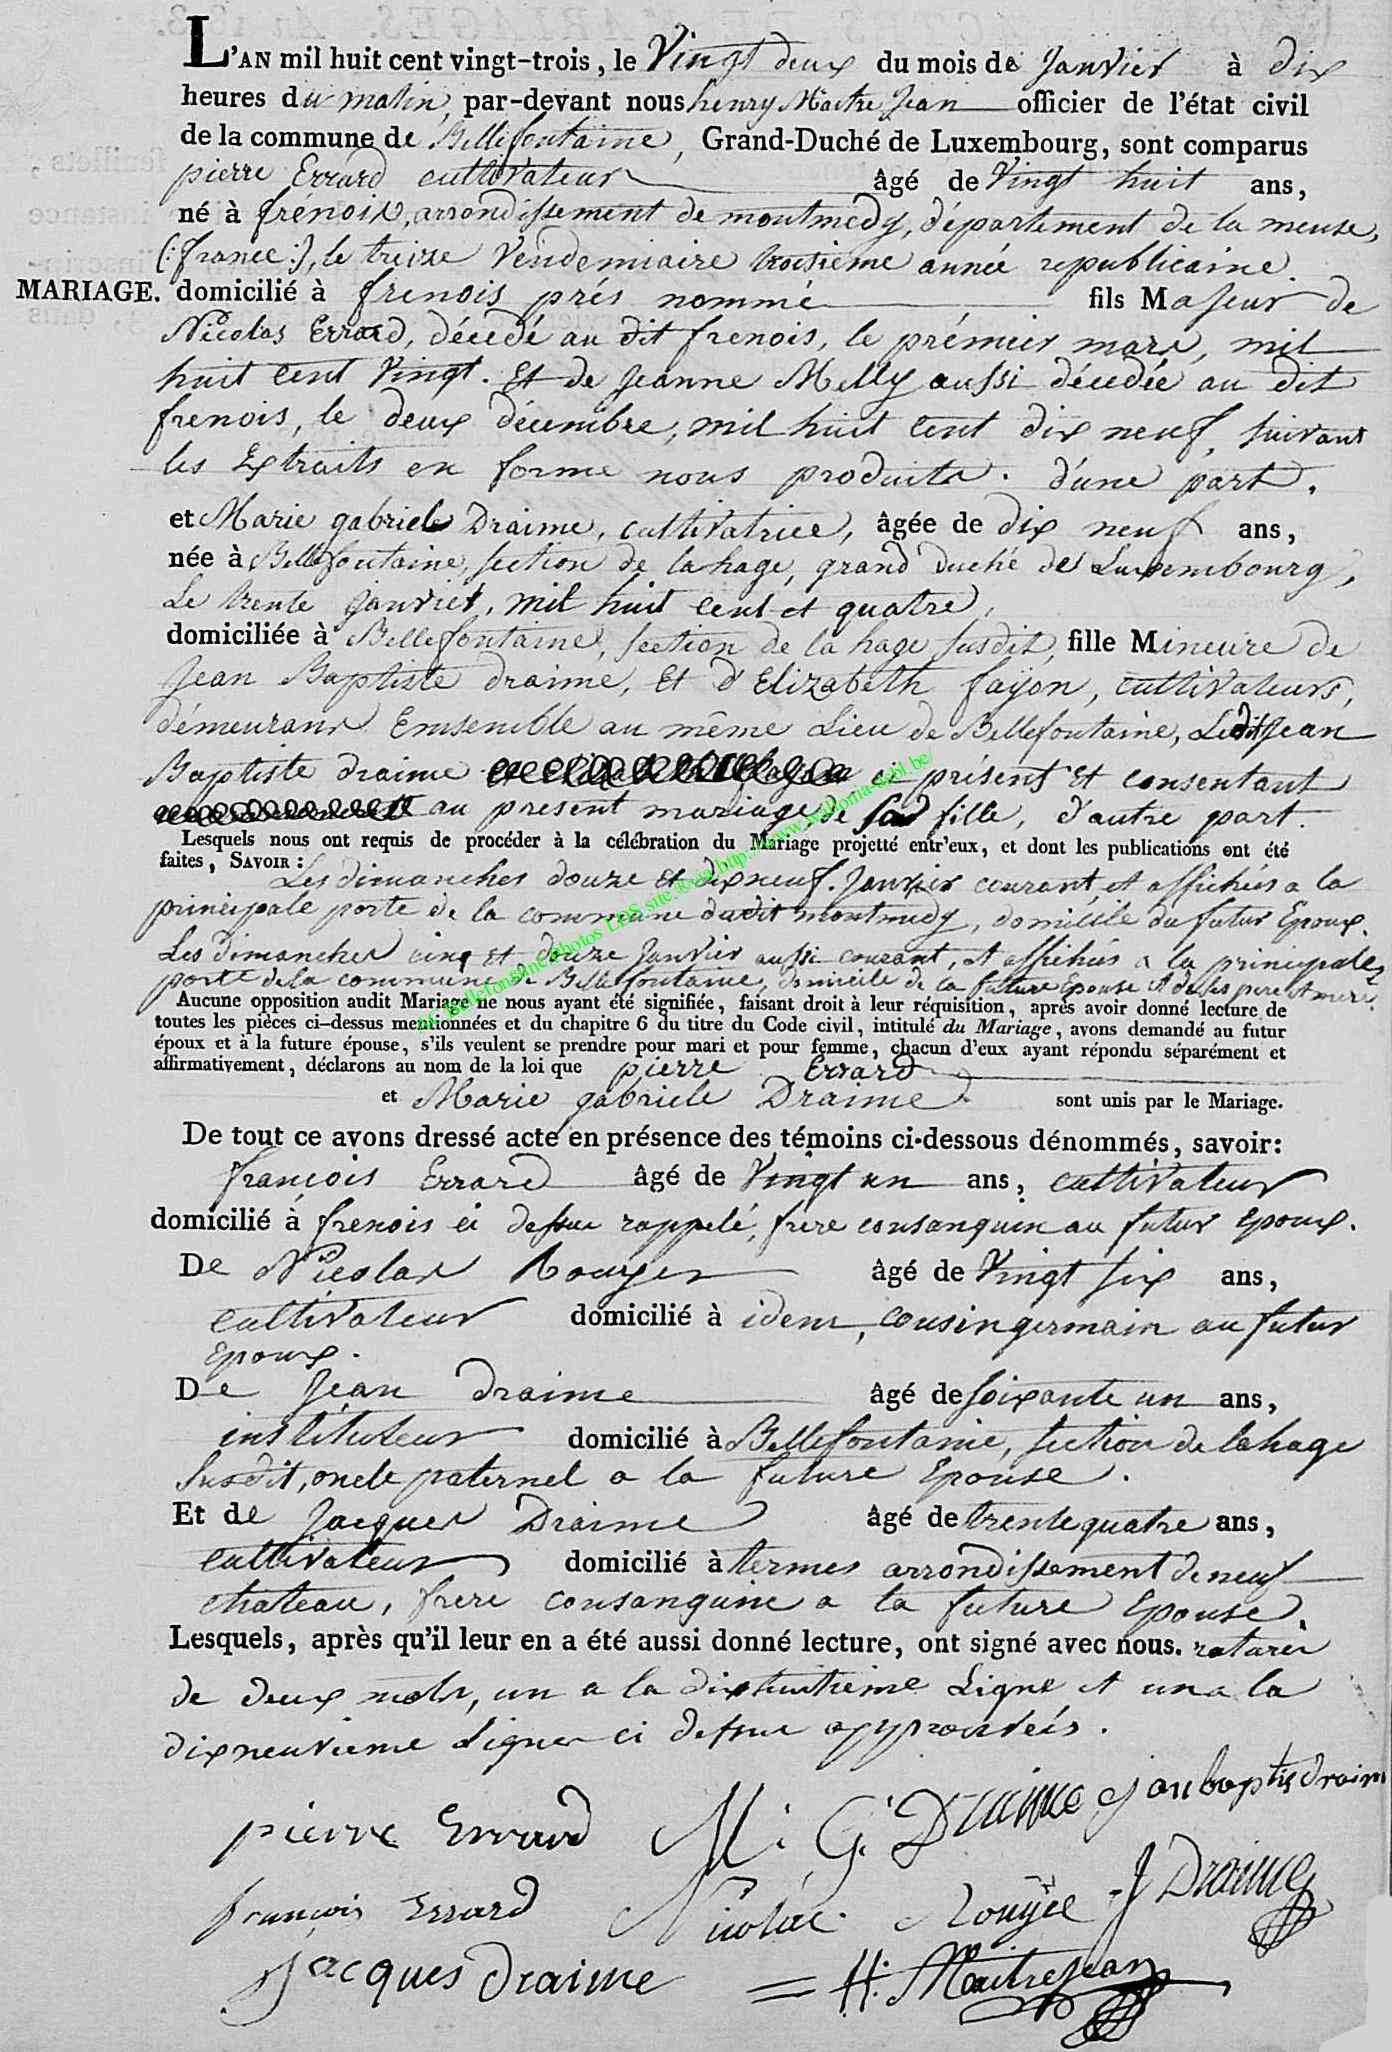 L'AN mil huit cent vingt-trois, le Vingt deux du mois de Janvier à dix
heures du matin, par-devant nous henry Maitre Jean officier de l'état civil
de la commune de Bellefontaine, Grand-Duché de Luxembourg, sont comparus
pierre Errard cultivateur âgé de Vingt huit ans,
né à frénois, arrondissement de montmedy, département de la meuse,
(: france :), le treize Vendemiaire troisieme année republicaine.
MARIAGE. domicilié à frenois prés nommé fils Majeur de
Nicolas Errard, décedé au dit frenois, le prémier mars, mil
huit cent Vingt. Et de Jeanne Melly aussi décedée au dit
frenois, le deux décembre, mil huit cent dix neuf, suivant
les Extraits en forme nous produits. d'une part.
et Marie gabriele Draime, cultivatrice, âgée de dix neuf ans,
née à Bellefontaine, section de lahage, grand duché de Luxembourg,
Le trente janvier, mil huit cent et quatre,
domiciliée à Bellefontaine, section de la hage susdit, fille Mineure de
Jean Baptiste draime, Et d'Elizabeth fayon, cultivateurs,
démeurans Emsemble au même Lieu de Bellefontaine, Ledit Jean
Baptiste draime ci présent Et consentant
au present mariage de sad fille, d'autre part.
Lesquels nous ont requis de procéder à la célébration du Mariage projetté entr'eux, et dont les publications ont été
faites, SAVOIR :
Les dimanches douze et dixneuf Janvier courant, et affichés a la
principale porte de la commune dudit montmedy, domicile du futur Epoux.
Les dimanches cinq et douze Janvier aussi courant, et affichés a la principale
porte de la commune de Bellefontaine, domicile de la future Epouse et de ses pere et mere.
Aucune opposition audit Mariage ne nous ayant été signifiée, faisant droit à leur réquisition, après avoir donné lecture de
toutes les pièces ci-dessus mentionnées et du chapitre 6 du titre du Code civil, intitulé du Mariage, avons demandé au futur
époux et à la future épouse, s'ils veulent se prendre pour mari et pour femme, chacun d'eux ayant répondu séparément et
affirmativement, déclarons au nom de la loi que pierre Errard
et Marie gabriele Draime sont unis par le Mariage.
De tout ce avons dressé acte en présence des témoins ci-dessous dénommés, savoir:
françois Errard âgé de Vingt un ans, cultivateur
domicilié à frenois ci dessus rappelé, frere consanguin au futur Epoux.
De Nicolas Rouyer âgé de Vingt six ans,
cultivateur domicilié à idem, cousin germain au futur
Epoux.
De Jean draime âgé de soixante un ans,
instituteur domicilié à Bellefontaine, section de lahage
Susdit, oncle paternel a la future Epouse.
Et de Jacques Draime âgé de trente quatre ans,
cultivateur domicilié à termes arrondissement de neuf
chateau, frere consanguine a la future Epouse.
Lesquels, après qu'il leur en a été aussi donné lecture, ont signé avec nous.
de deux mots, un a la dixhuitieme Ligne et un a la
dixneuvieme Ligne ci dessus approuvés.
pierre Errard M. G. Draime janbaptis draim
françois Errard Nicolas Rouyer J Draime
Jacques draime = H. Maitrejean